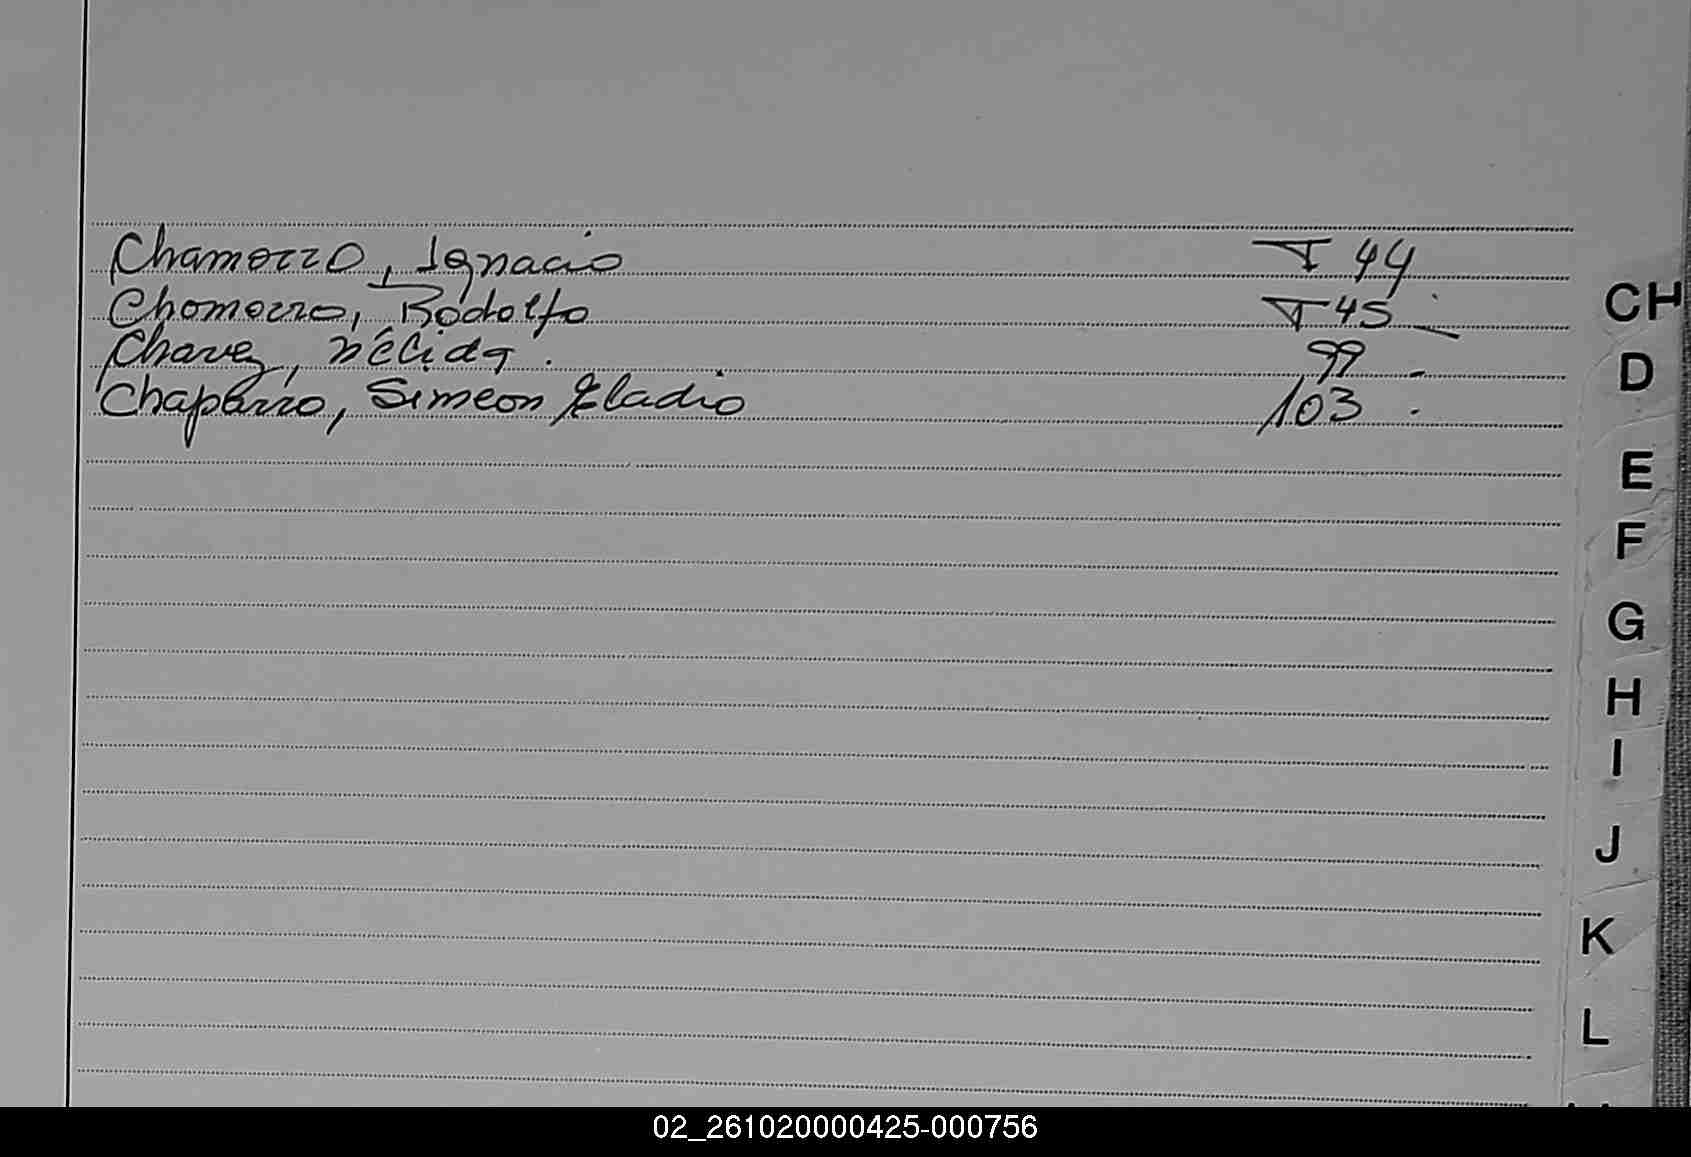 Chamorro, Ignacio T 44
Chamorro, Rodolfo T 45
Chavez, Nélida. 99
Chaparro, Simeon Eladio 103
CH
D
E
F
G
H
I
J
K
L
02_261020000425-000756